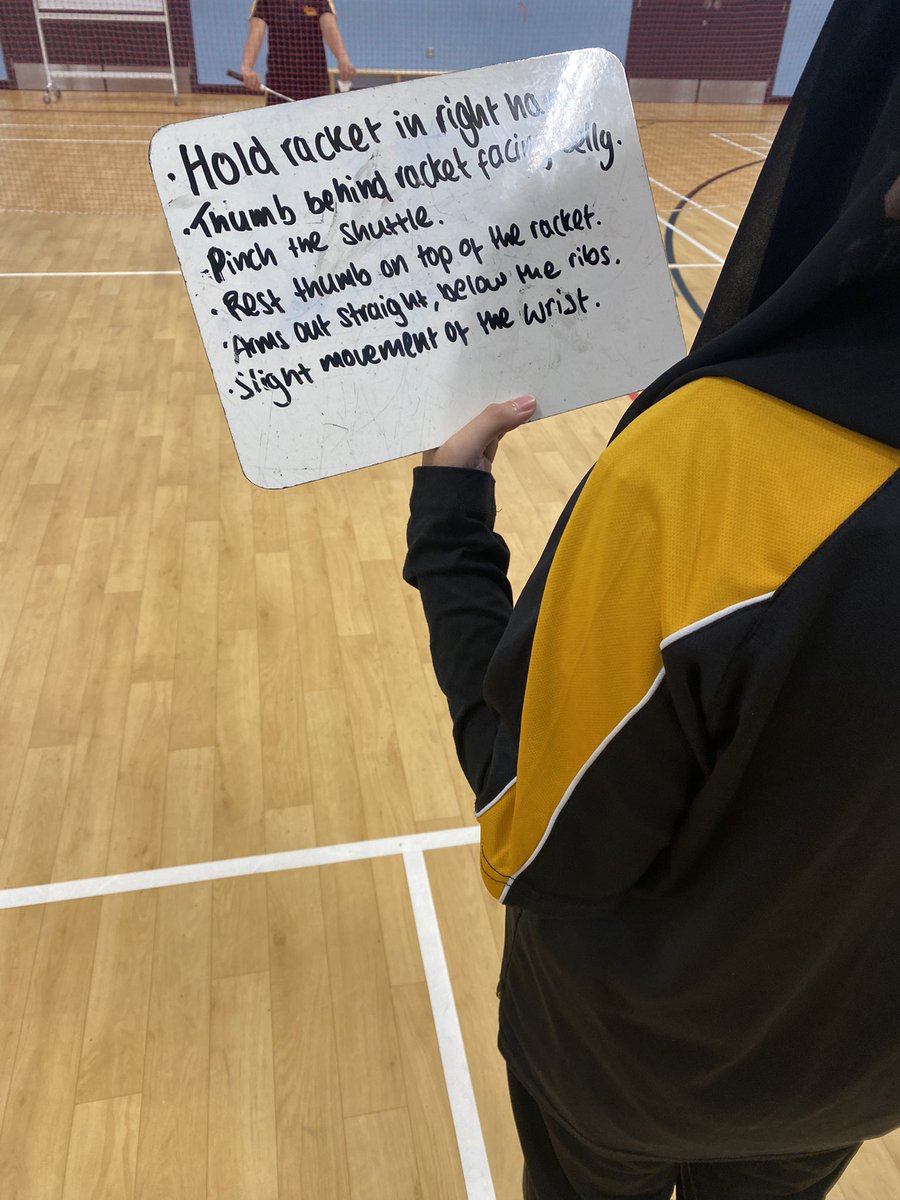 · Hold racket in right
· Thumb behind racket facing belly.
· Pinch the shuttle.
· Rest thumb on top of the racket.
· Arms out straight, below the ribs.
· Slight movement of the wrist.